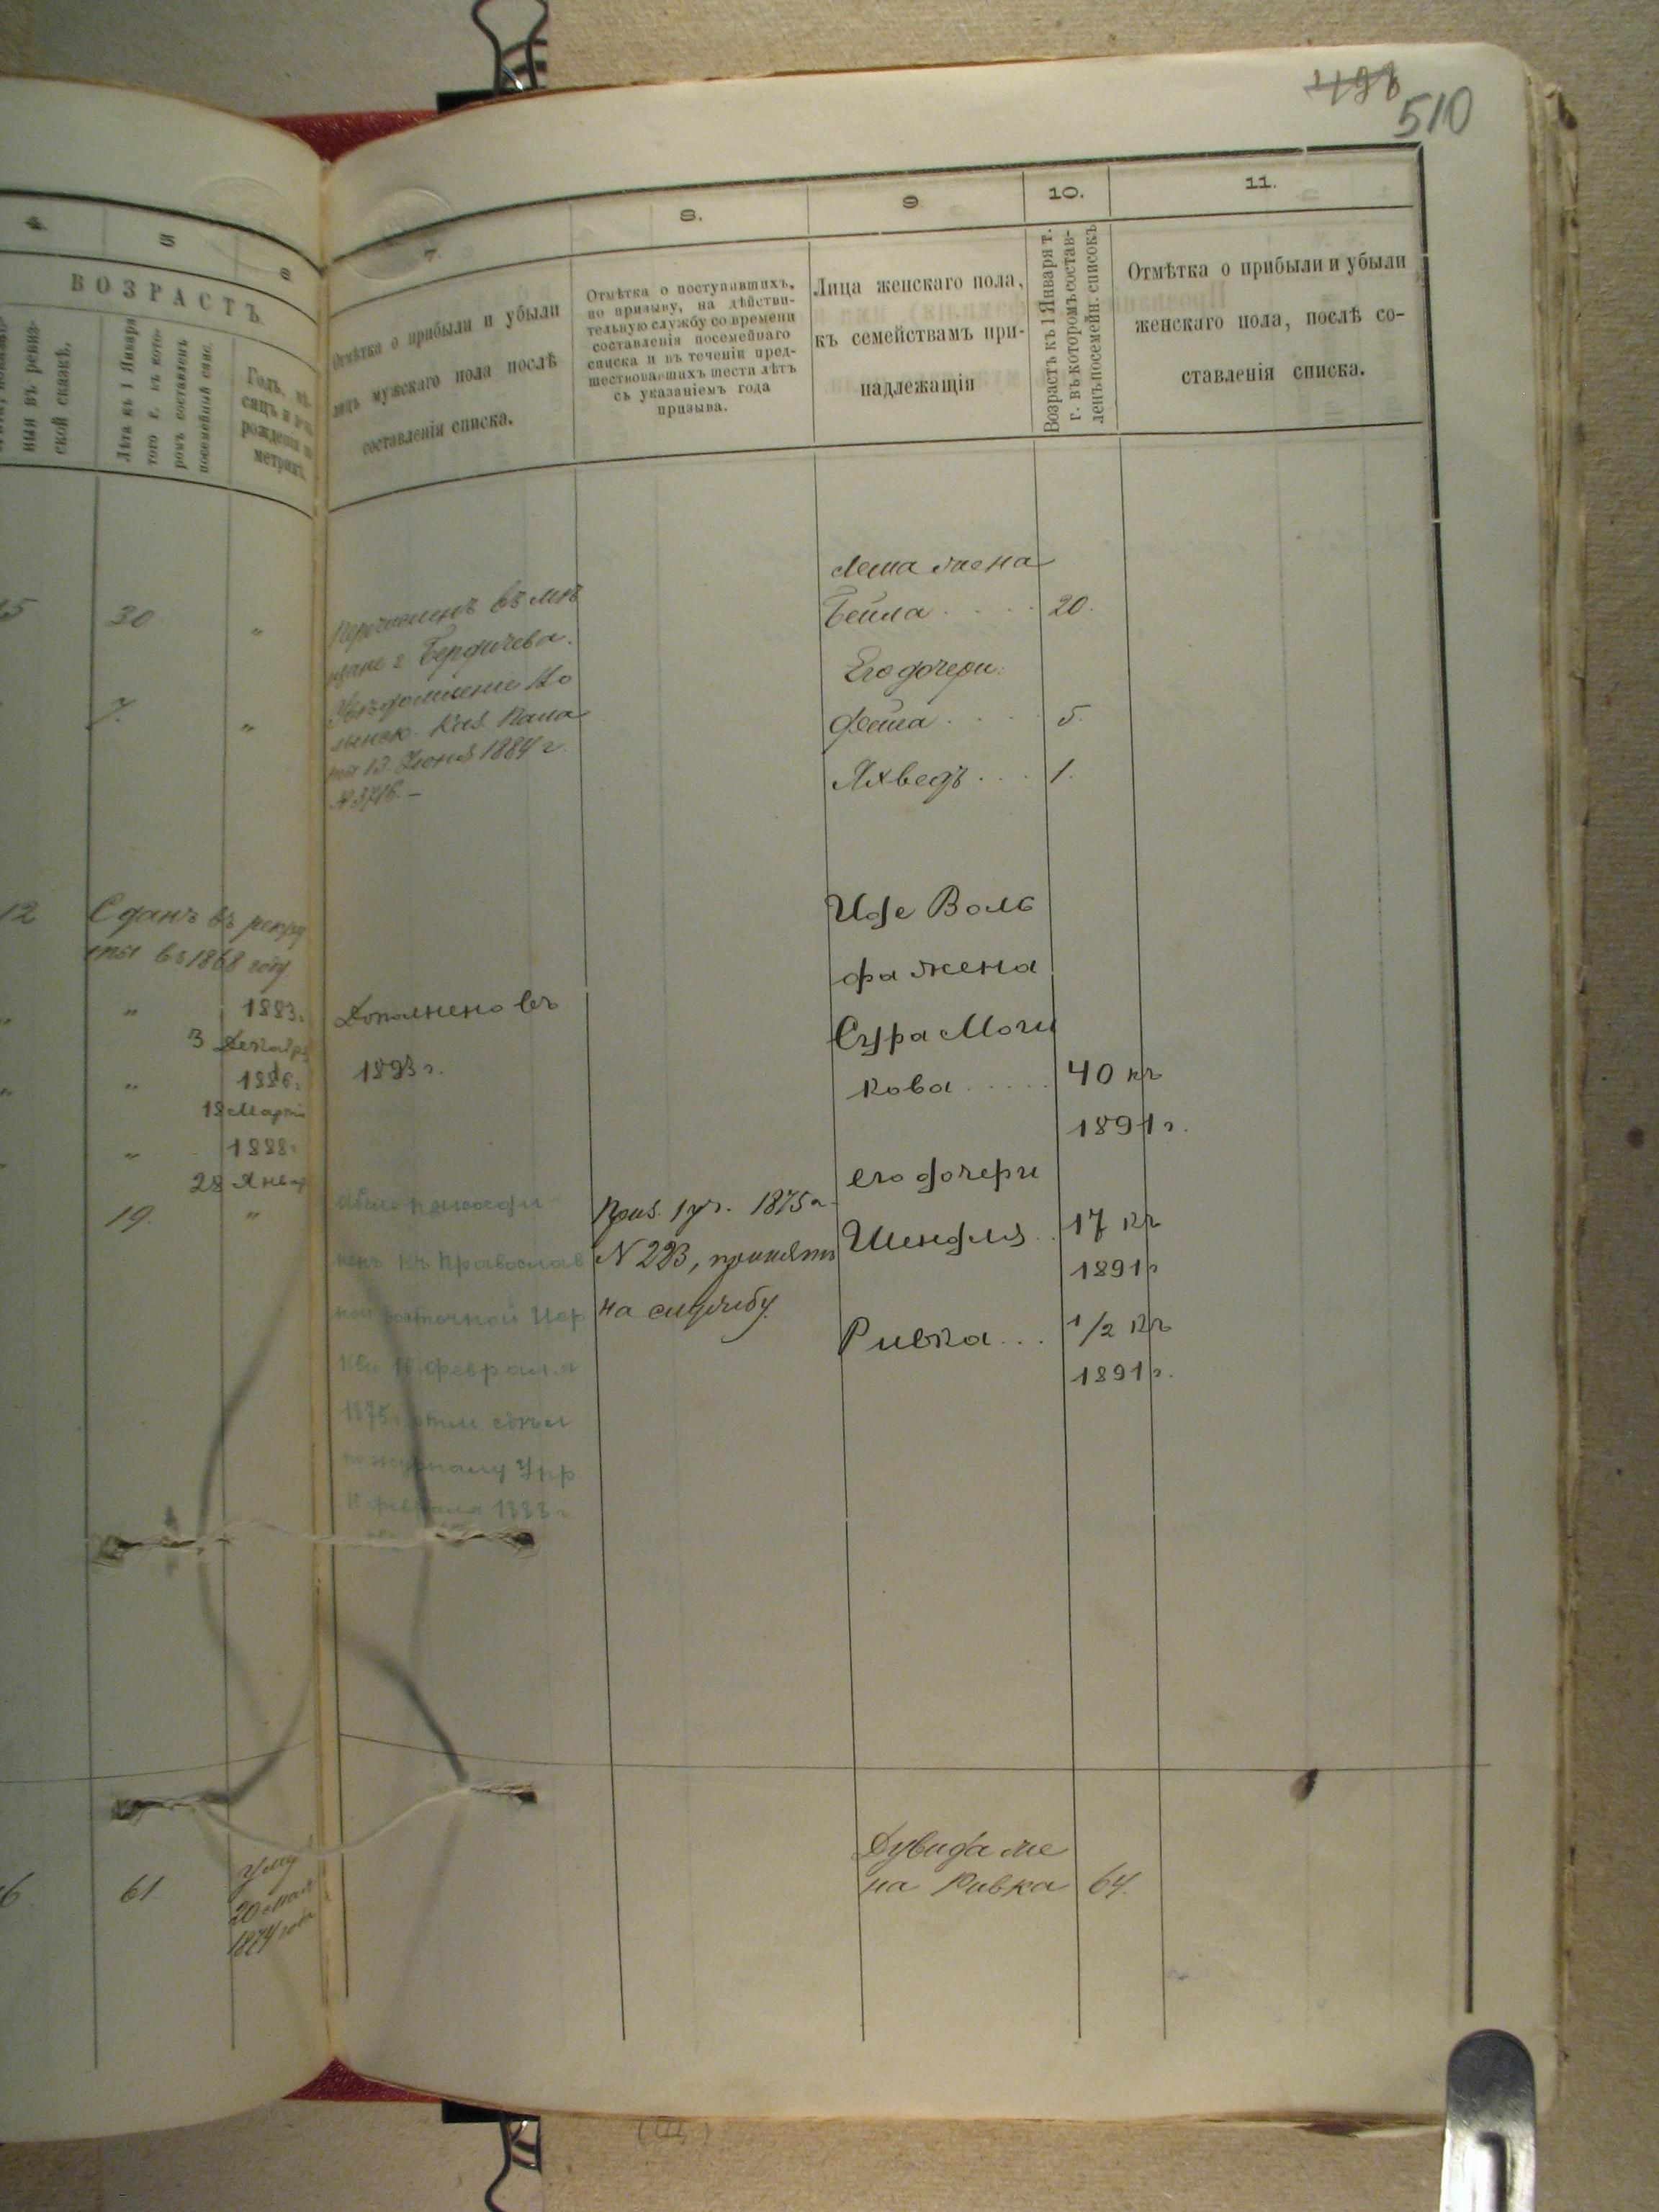 498
510
4.
5
6
7.
8.
9
10.
11.
ВОЗРАСТЪ.
ныя въ ревиз-
ской сказкѣ.
Лѣта къ 1 Января
того г. въ кото-
ромъ составленъ
посемейный спис.
Годъ, мѣ-
сяцъ и день
рожденія по
метрик.
Отмѣтка о прибыли и убыли
лицъ мужскаго пола послѣ
составленія списка.
Отмѣтка о поступившихъ,
по призыву, на дѣйстви-
тельную службу со времени
составленія посемейнаго
списка и въ теченіи пред-
шествовавшихъ шести лѣтъ
съ указаніемъ года
призыва.
Лица женскаго пола,
къ семействамъ при-
надлежащія
Возрастъ къ 1 Января т.
г. въ которомъ состав-
ленъ посемейн. списокъ
Отмѣтка о прибыли и убыли
женскаго пола, послѣ со-
ставленія списка.
30
"
7.
"
Перечисленъ въ мѣ
щане г. Бердичева.
Увѣдомленіе Во
лынск. Каз. Пала
ты 13 Іюня 1884 г
№ 3716. —
жена
Бейла . . . . 20.
Его дочери:
Фейга . . . . 5.
Яхведъ . . . . 1.
12
Сданъ въ рекру
ты въ 1868 году
" 1883 г.
3 Декабря
" 1886 г.
18 Марта
" 1888 г.
28 Январ
19. "
Дополнено въ
1893 г.
присоеди
ненъ къ Православ
ной восточной Цер
кви февраля
1875 г.
по журналу
февраля 1888 г
Приз. 1 уч. 1875 г.
N 223, принятъ
на службу.
Воль
фа жена
Сура Мош
кова . . . . . 40 къ
1891 г.
его дочери
Шендля . . 17 къ
1891 г
Ривка . . . 1/2 къ
1891 г.
6.
61
умер
20 мая
1874 года
Дувида же
на Ривка 64.